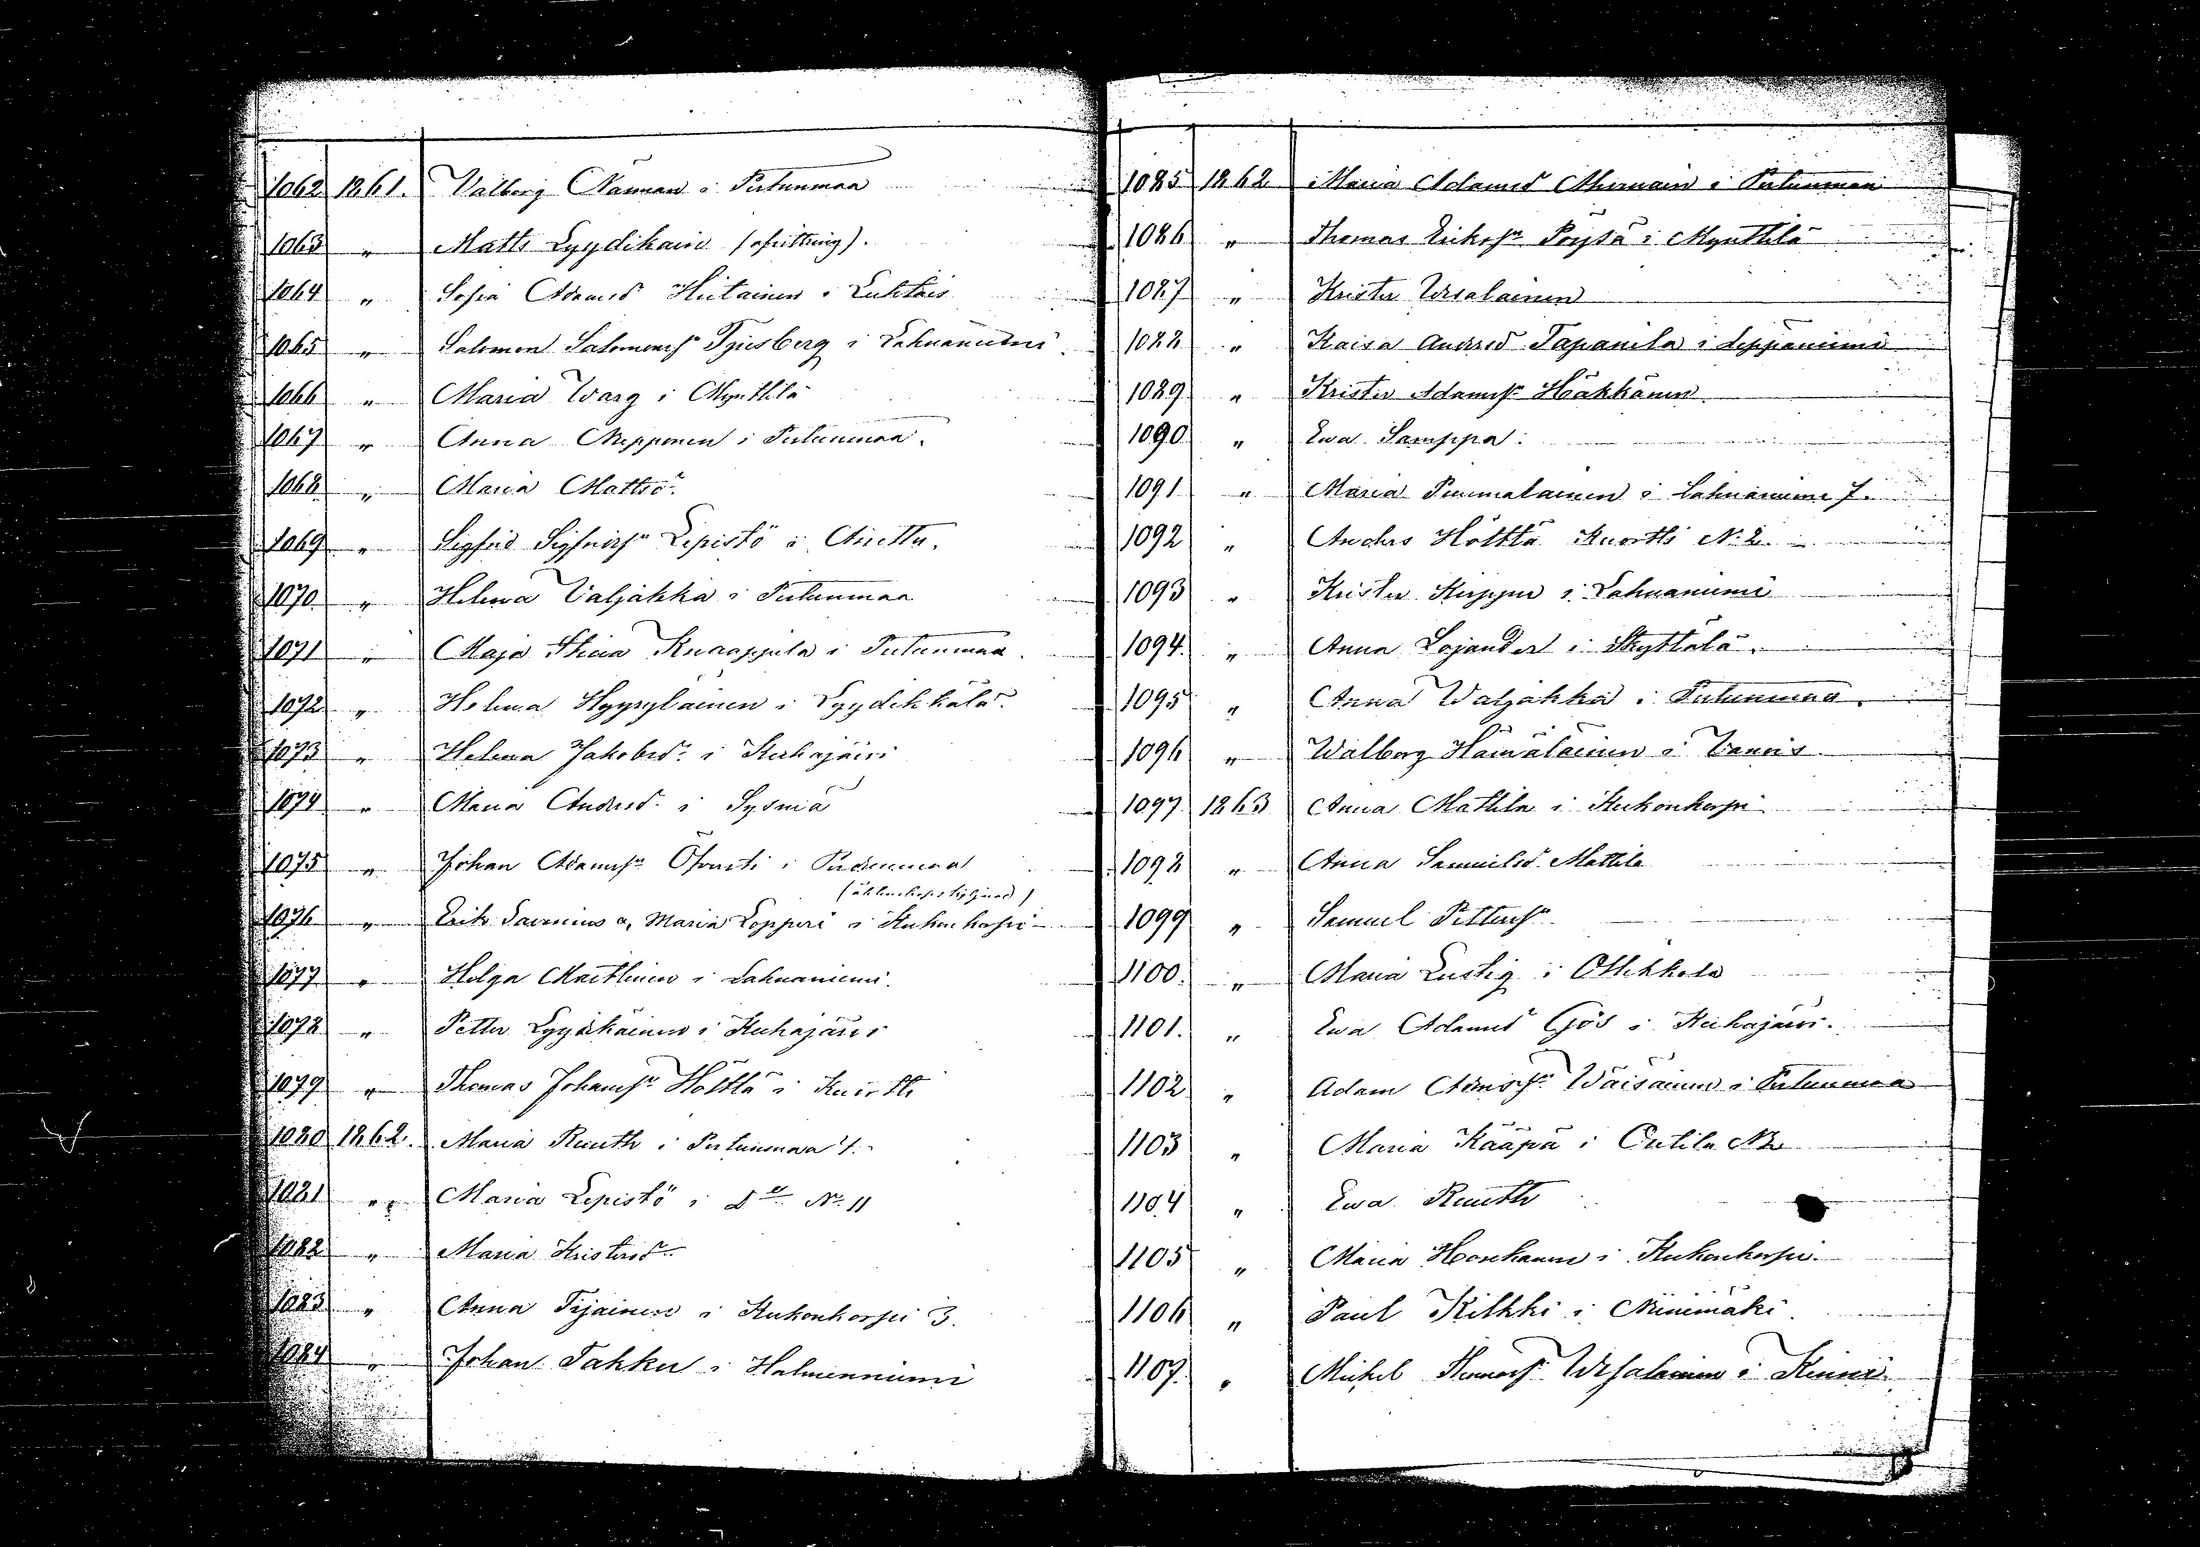 1062 1861. Valborg Näman i Pertunmaa
1063 " Matts Lyydikain (afrittning).
1064 " Sofia Adamsd Hiitainen i Luhtais
1065 " Salomon Salomonsn Tjusberg i Lahnaniemi
1066 " Maria Warg i Mynttilä
1067 " Anna Nepponen i Pertunmaa.
1068 " Maria Mattsd.
1069 " Sigfrid Sigfridsn Lepistö i
1070 " Helena Valjakka i Pertunmaa
1071 " Maja Stina Knaappila i Pertunmaa.
1072 " Helena Hyyryläinen i Lyydikkälä.
1073 " Helena Jakobsd. i Kuhajärvi
1074 " Maria Andersd. i Sysmä
1075 " Johan Adamsn i Pertunmaa
(äktenskapsskiljnad)
1076 " Erik Savenius o, Maria Lopperi i Kuhonkorpi
1077 " Helga Marttinen i Lahnaniemi.
1078 " Petter Lyydikäinen i Kuhajärvi
1079 " Thomas Johansn Hölttä i Kuortti
1080 1862. Maria Ruuth i Pertunmaa 4.
1081 " Maria Lepistö i Do No 11
1082 " Maria Kristersd.
1083 " Anna Tijainen i Kuhonkorpi 3.
1084 " Johan Takku i Halmenniemi
1085 1862 Maria Adamsd i Pertunmaa
1086 " Thomas Eriksn Pöysä i Mynttilä
1087 " Krister Ursalainen
1088 " Kaisa Andersd Tapanila i Leppäniemi
1089 " Krister Adamsn Häkkänen
1090 " Ewa Samppa.
1091 " Maria Pummalainen i Lahnaniemi 7.
1092 " Anders Hölttä Kuortti No 2.
1093 " Krister Kirppu i Lahnaniemi
1094. " Anna Lojander i Skyttälä.
1095 " Anna Waljakka i Pertunmaa.
1096 " Walborg Hämäläinen i Vanris
1097. 1863 Anna Mattila i Kuhonkorpi
1098 " Anna Samuelsd. Mattila
1099 " Samuel Pettersn
1100. " Maria Lustig i Ollikkala
1101. " Ewa Adamsd Gös i Kuhajärvi.
1102 " Adam Adamsn Wäisäinen i Pertunmaa
1103 " Maria Kääpä i Outila No 2
1104 " Ewa Ruuth
1105 " Maria Honkanen i Kuhonkorpi.
1106 " Paul Kilkki i Niinimäki.
1107. " Michel Thomasn Ursalainen i Kinni